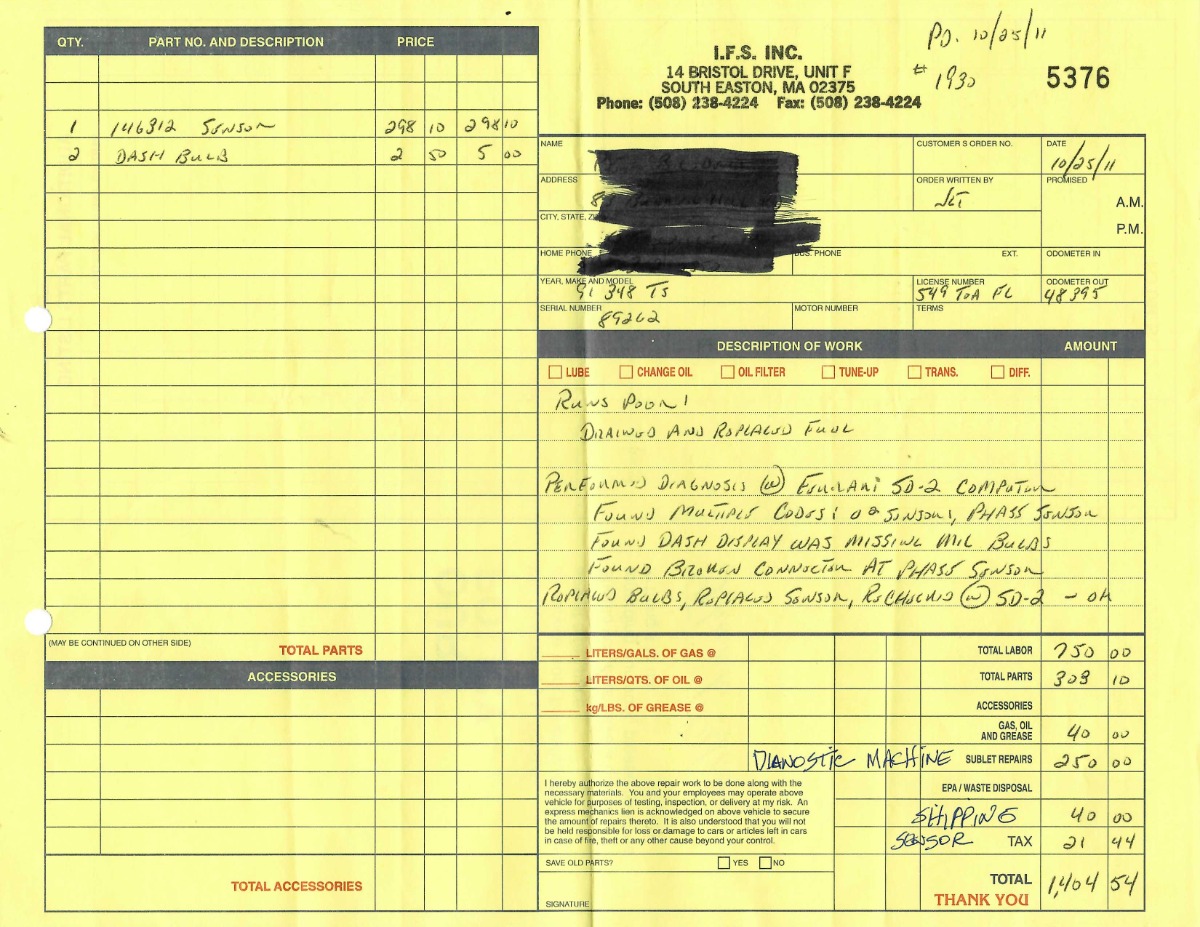 PD. 10/25/11
# 1930
5376
I.F.S. INC.
14 BRISTOL DRIVE, UNIT F
SOUTH EASTON, MA 02375
Phone: (508) 238-4224 Fax: (508) 238-4224
QTY. PART NO. AND DESCRIPTION PRICE
1 146312 SENSOR 298 10 298 10
2 DASH BULB 2 50 5 00
(MAY BE CONTINUED ON OTHER SIDE) TOTAL PARTS
ACCESSORIES
TOTAL ACCESSORIES
NAME CUSTOMER'S ORDER NO. DATE
10/25/11
ADDRESS ORDER WRITTEN BY PROMISED
A.M.
CITY, STATE,
P.M.
HOME PHONE PHONE EXT. ODOMETER IN
YEAR, MAKE AND MODEL LICENSE NUMBER ODOMETER OUT
91 348 TS 549 TOA FL 48395
SERIAL NUMBER MOTOR NUMBER TERMS
89262
DESCRIPTION OF WORK AMOUNT
LUBE CHANGE OIL OIL FILTER TUNE-UP TRANS. DIFF.
RUNS POOR!
DRAINED AND REPLACED FUEL
PERFORMED DIAGNOSIS W FERRARI SD-2 COMPUTER
FOUND MULTIPLE CODES: O2 SENSOR, PHASE SENSOR
FOUND DASH DISPLAY WAS MISSING MIL BULBS
FOUND BROKEN CONNECTOR AT PHASE SENSOR
REPLACED BULBS, REPLACED SENSOR, RECHECKED W SD-2 - OK
LITERS/GALS. OF GAS @ TOTAL LABOR 750 00
LITERS/QTS. OF OIL @ TOTAL PARTS 303 10
kg/LBS. OF GREASE @ ACCESSORIES
GAS, OIL
AND GREASE 40 00
DIANOSTIC MACHINE SUBLET REPAIRS 250 00
I hereby authorize the above repair work to be done along with the
necessary materials. You and your employees may operate above
vehicle for purposes of testing, inspection, or delivery at my risk. An
express mechanics lien is acknowledged on above vehicle to secure
the amount of repairs thereto. It is also understood that you will not
be held responsible for loss or damage to cars or articles left in cars
in case of fire, theft or any other cause beyond your control.
EPA / WASTE DISPOSAL
SHIPPING 40 00
SENSOR TAX 21 44
SAVE OLD PARTS? YES NO
TOTAL 1,404 54
THANK YOU
SIGNATURE